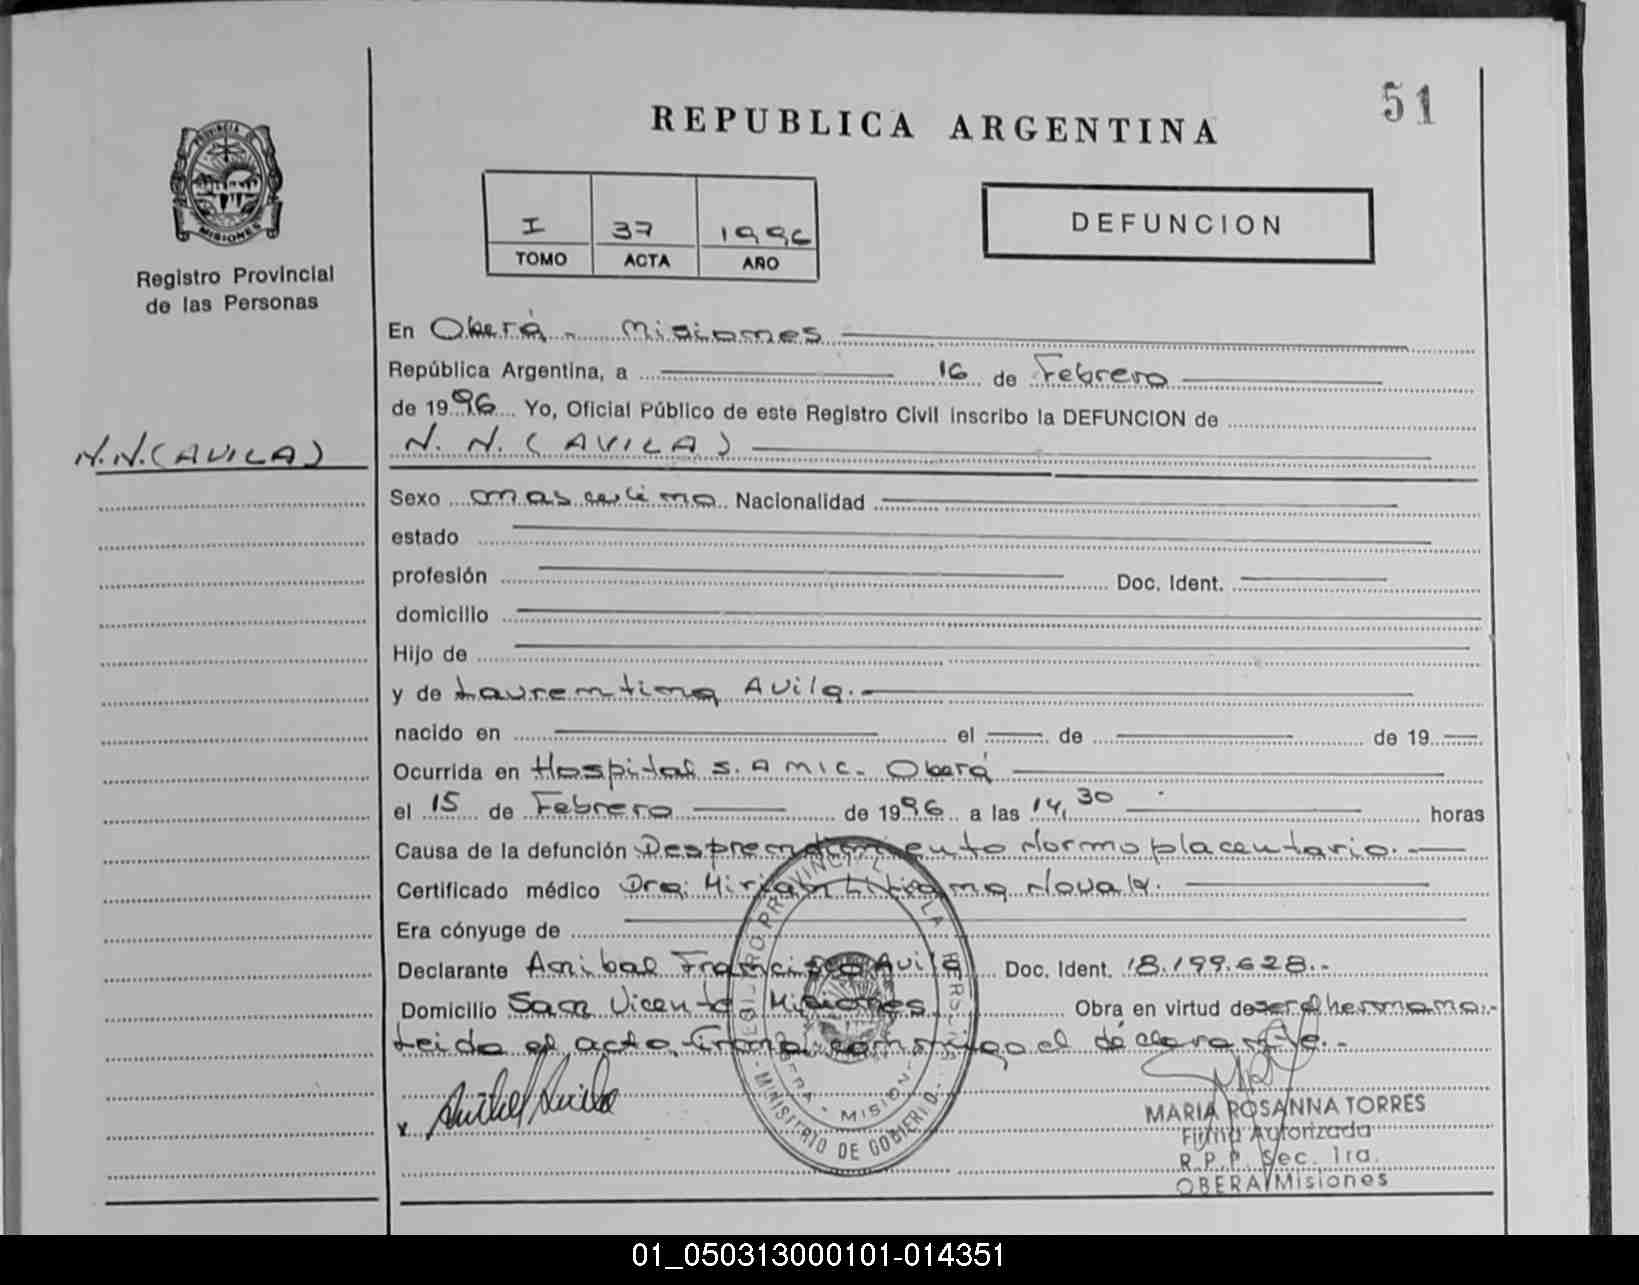 51
REPUBLICA ARGENTINA
PROVINCIA DE
MISIONES
Registro Provincial
de las Personas
I 37 1996
TOMO ACTA AÑO
DEFUNCION
En Oberá - Misiones
República Argentina, a 16 de Febrero
de 1996 Yo, Oficial Público de este Registro Civil inscribo la DEFUNCION de
N.N.(AVILA)
N. N. (AVILA)
Sexo masculino Nacionalidad
estado
profesión Doc. Ident.
domicilio
Hijo de
y de Laurentina Avila.-
nacido en el de de 19
Ocurrida en Hospital S.AMIC. Oberá
el 15 de Febrero de 1996 a las 14,30 horas
Causa de la defunción Desprendimiento Normoplacentario.-
Certificado médico Dra: Miriam Liliana Novak.
Era cónyuge de
Declarante Anibal Francisco Avila Doc. Ident. 18.199.628.-
Domicilio San Vicente Misiones Obra en virtud de ser el hermano.-
Leido el acta, Firma conmigo el déclarante.-
x Anibal Avila
MINISTERIO DE GOBIERNO
MARIA ROSANNA TORRES
Firma Autorizada
R.P.P. Sec. 1ra.
OBERA Misiones
01_050313000101-014351